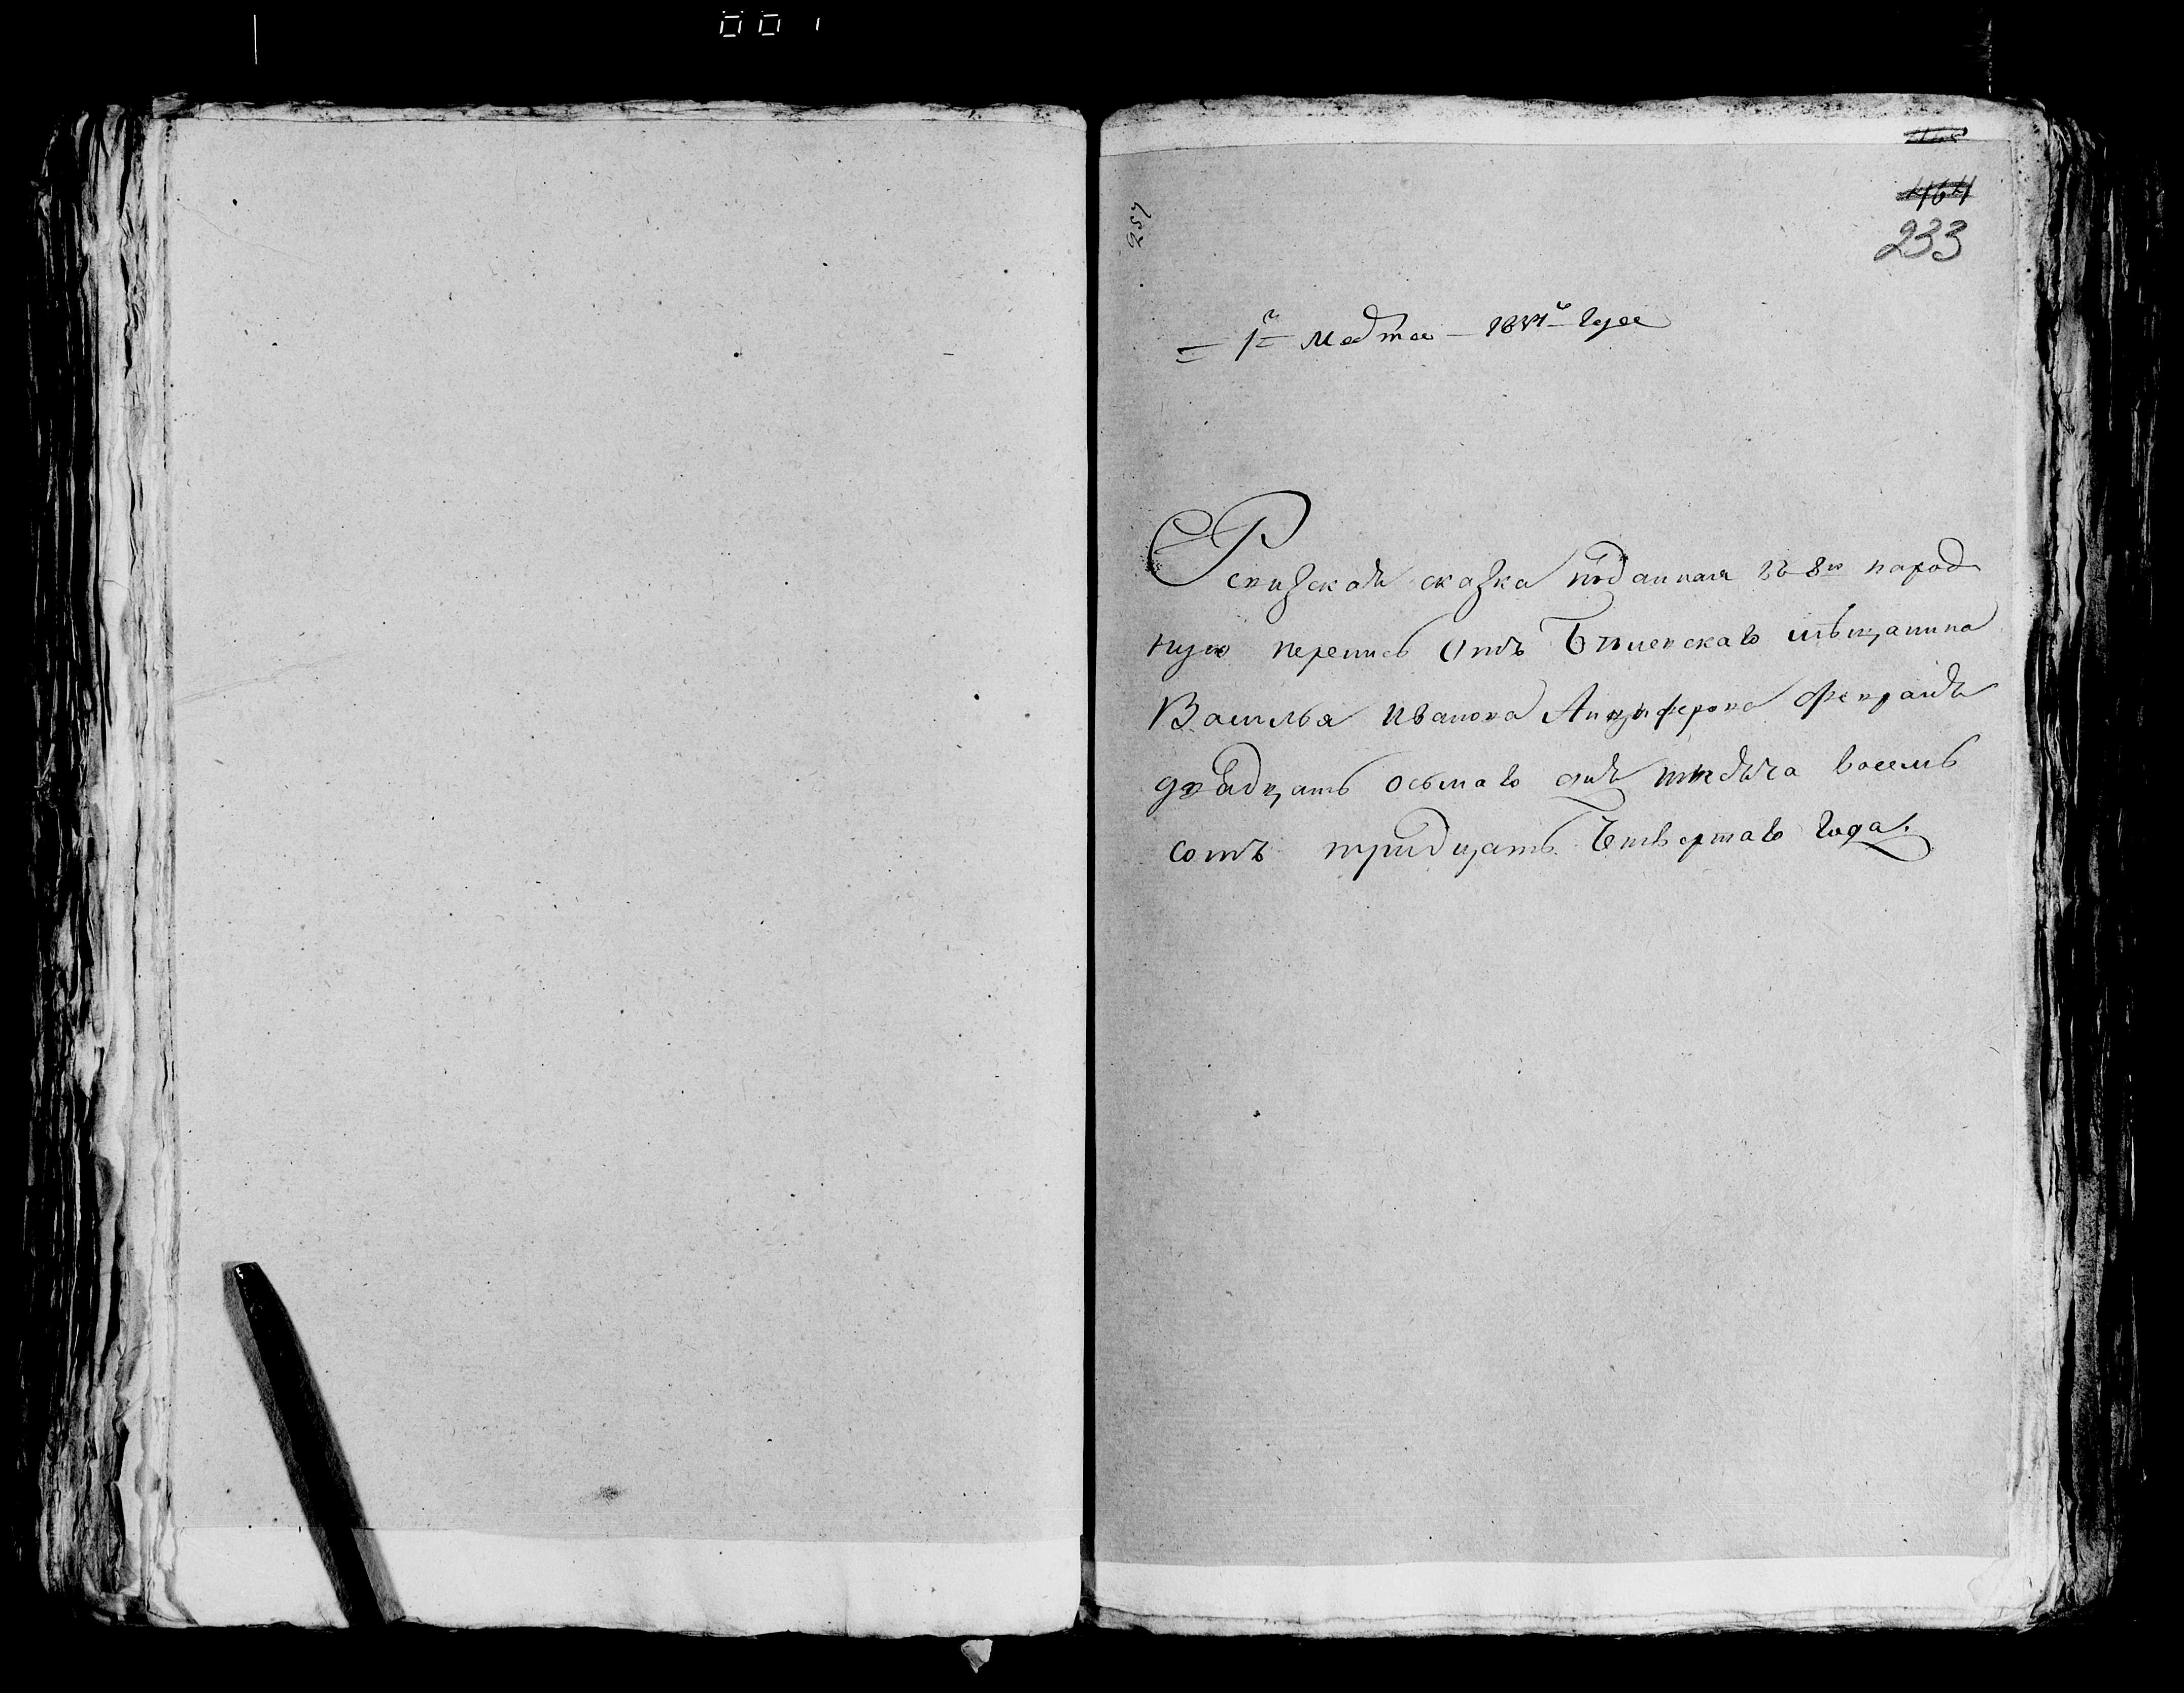 001
465
464
233
257
= 1е= Марта – 1834го Года
Ревизская сказка поданная въ 8ю народ
ную перепись Отъ Бѣлевскаго мѣщанина
Василья Иванова Анцыферова Февраля
двадцать осьмаго дня тысяча восемь
сотъ тридцать Четвертаго Года.